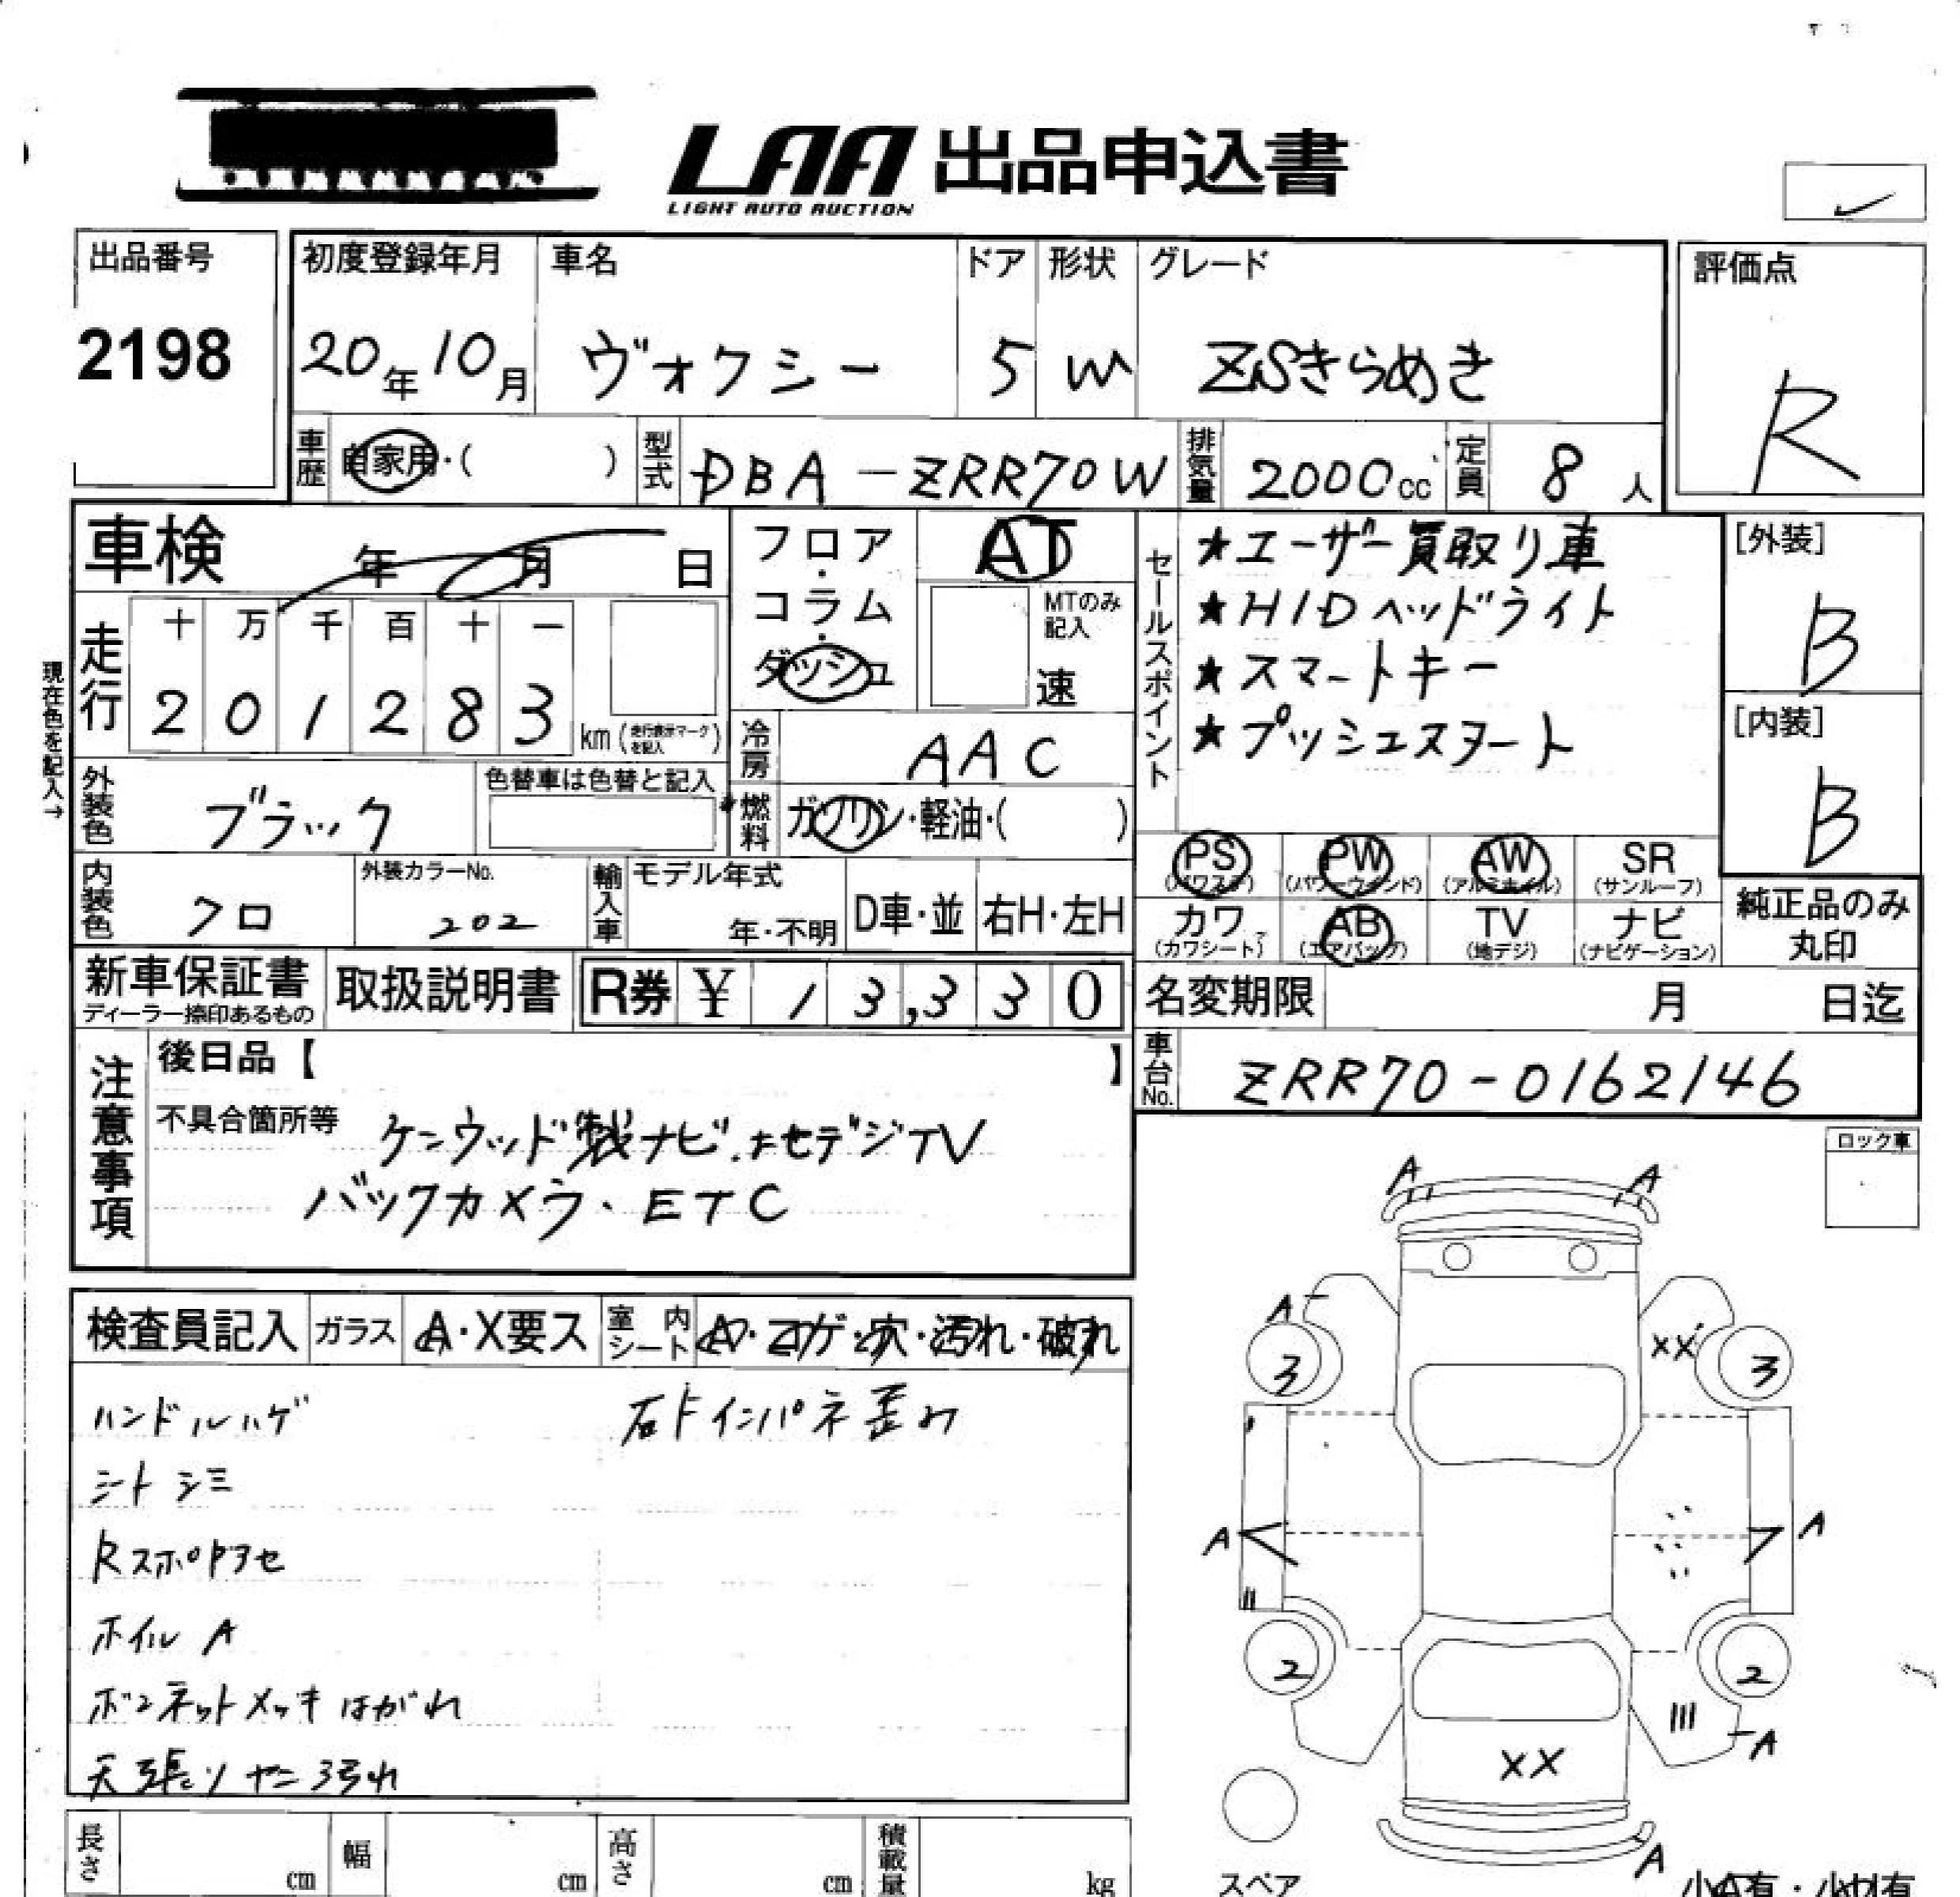 LAA 出品申込書
LIGHT AUTO AUCTION
出品番号
2198
初度登録年月
20年10月
車名
ヴォクシー
ドア
5
形状
W
グレード
ZSきらめき
評価点
R
車歴 自家用・( )
型式 DBA-ZRR70W
排気量 2000cc
定員 8人
車検 年 月 日
走行
十 万 千 百 十 一
2 0 1 2 8 3 km (走行表示マークを記入)
現在色を記入→
フロア・コラム・ダッシュ
AT
MTのみ記入
速
冷房 AAC
燃料 ガソリン・軽油・( )
セールスポイント
★ユーザー買取り車
★HIDヘッドライト
★スマートキー
★プッシュスタート
[外装]
B
[内装]
B
外装色 ブラック
色替車は色替と記入
内装色 クロ
外装カラーNo.
202
輸入車
モデル年式
年・不明
D車・並
右H・左H
PS
(パワステ)
PW
(パワーウインド)
AW
(アルミホイル)
SR
(サンルーフ)
カワ
(カワシート)
AB
(エアバッグ)
TV
(地デジ)
ナビ
(ナビゲーション)
純正品のみ
丸印
新車保証書
ディーラー捺印あるもの
取扱説明書
R券 ¥ 13,330
名変期限 月 日迄
車台No. ZRR70-0162146
注意事項
後日品【 】
不具合箇所等
ケンウッド製ナビ.地デジTV
バックカメラ・ETC
ロック車
検査員記入
ガラス A・X要ス
室内シート A・コゲ・穴・汚れ・破れ
ハンドルハゲ
シトシミ
Rスポ色アセ
ホイルA
ボンネットメッキはがれ
天張りヤニ汚れ
右Fインパネ歪み
A A
A
XX
3 3
A A
2 2
A
XX
A
スペア
長さ cm
幅 cm
高さ cm
積載量 kg
小A有・小U有